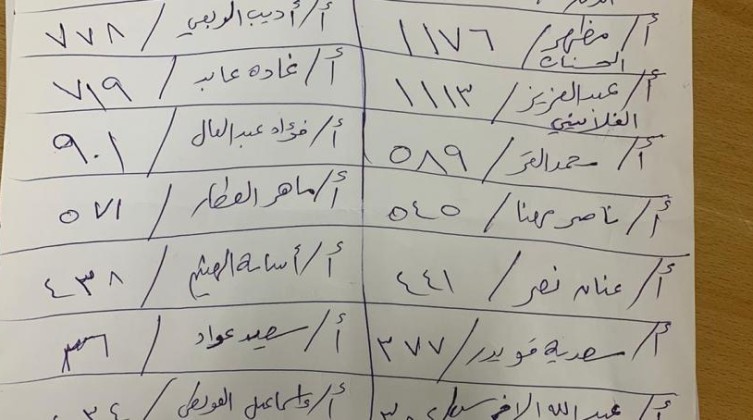 أ/ مظهر / ١١٧٦
الحسنات
أ/ عبد العزيز / ١١١٣
الغلاييني
أ/ محمد الغر / ٥٨٩
أ/ ناصر مهنا / ٥٤٥
أ/ عنان نصر / ٤٤١
أ/ سعدية قويدر / ٣٧٧
أ/ عبد الله
أ/ أديب الربعي / ٧٧٨
أ/ غاده عابد / ٧١٩
أ/ فؤاد عبد العال / ٩٠١
أ/ ماهر العطار / ٥٧١
أ/ أسامة الهيثم / ٤٣٨
أ/ سعيد عواد / ٣٣٦
أ/ إسماعيل